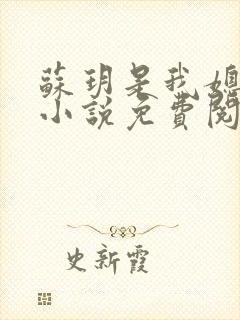 蘇玥是我媳
小說免費閱
史新霞